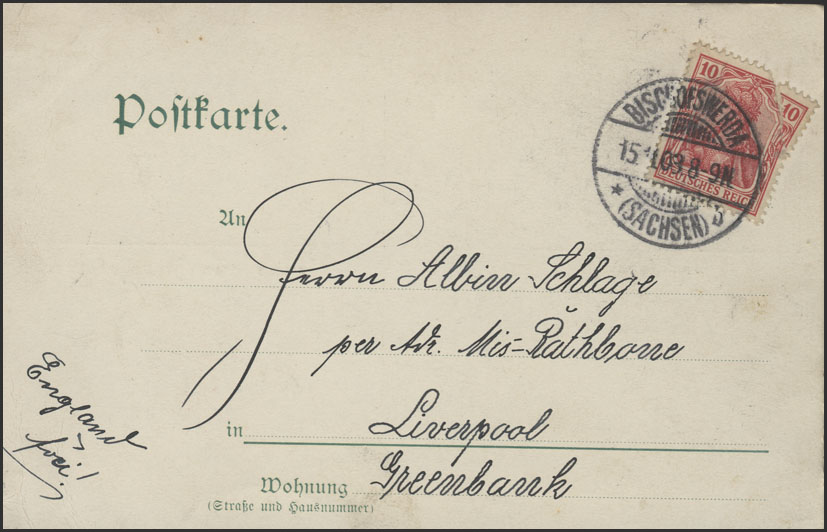 Postkarte.
10
10
DEUTSCHES REICH
BISCHOFSWERDA
8-9N.
* (SACHSEN) b
An
Herrn Albin Schlage
per Adr. Mis-Rathbone
in Liverpool
Wohnung Greenbank
(Straße und Hausnummer)
England
frei!